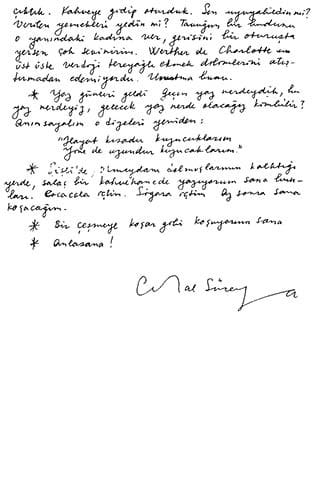 çıktık. Kahveye gidip oturduk. Sen uyuyabildin mi?
Verilen yemekleri yedin mi? Tavuğun bir budunu
o yanındaki kadına ver, gerisini bir oturuşta
yersen çok sevinirim. Werther de Charlotte'un
üst üste verdiği tereyağlı ekmek dilimlerini atış-
tırmadan edemiyordu. Unutma bunu.
* Yaz günleri geldi. Geçen yaz nerdeydik, bu
yaz nerdeyiz, gelecek yaz nerde olacağız kimbilir?
Anımsayalım o dizeleri yeniden:
"Hayat kısadır kuşucuklarım
Yine de uzundur kuşucuklarım."
* Şişli'de, meydanı kalktığı
yerde, salaş bir kahvehanede yazıyorum sana bun-
ları. Cocacola içtim. Sigara içtim. Az sonra sana
koşacağım.
* Bir çeşmeye koşar gibi koşuyorum sana
* Anlasana!
Cemal Süreya